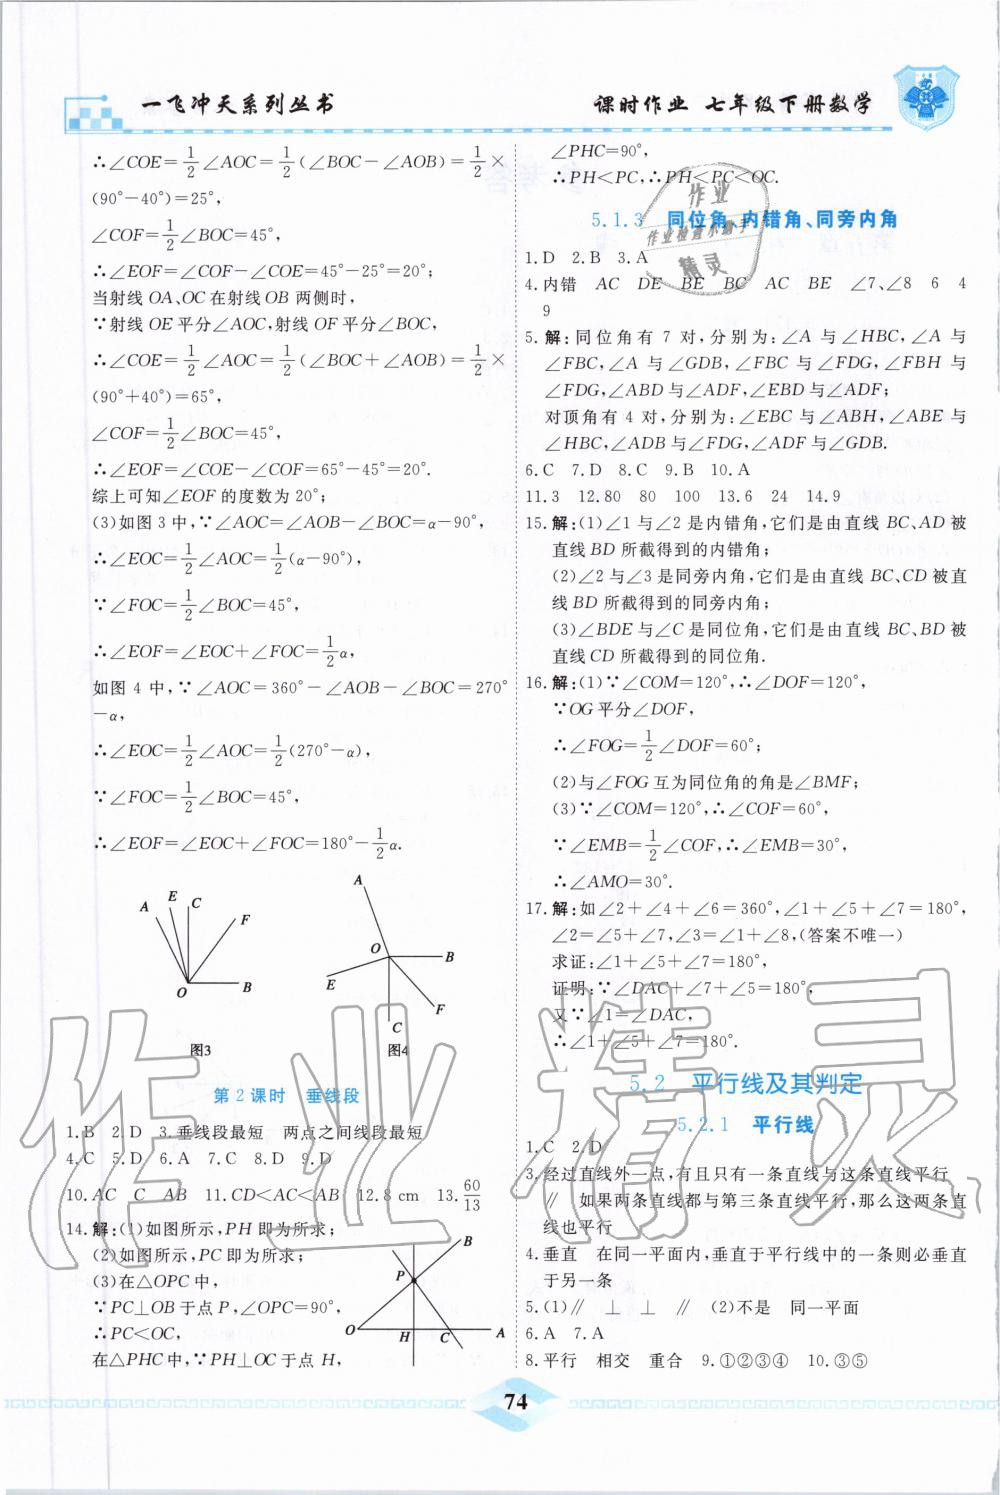 一飞冲天系列丛书
课时作业 七年级下册数学
∴∠COE=1/2∠AOC=1/2(∠BOC-∠AOB)=1/2×
(90°-40°)=25°,
∠COF=1/2∠BOC=45°,
∴∠EOF=∠COF-∠COE=45°-25°=20°;
当射线OA、OC在射线OB两侧时,
∵射线OE平分∠AOC,射线OF平分∠BOC,
∴∠COE=1/2∠AOC=1/2(∠BOC+∠AOB)=1/2×
(90°+40°)=65°,
∠COF=1/2∠BOC=45°,
∴∠EOF=∠COE-∠COF=65°-45°=20°.
综上可知∠EOF的度数为20°;
(3)如图3中,∵∠AOC=∠AOB-∠BOC=α-90°,
∴∠EOC=1/2∠AOC=1/2(α-90°),
∵∠FOC=1/2∠BOC=45°,
∴∠EOF=∠EOC+∠FOC=1/2α,
如图4中,∵∠AOC=360°-∠AOB-∠BOC=270°
-α,
∴∠EOC=1/2∠AOC=1/2(270°-α),
∵∠FOC=1/2∠BOC=45°,
∴∠EOF=∠EOC+∠FOC=180°-1/2α.
A E C F O B
图3
A O B E F C
图4
第2课时 垂线段
1.B 2.D 3.垂线段最短 两点之间线段最短
4.C 5.D 6.A 7.C 8.D 9.D
10.AC C AB 11.CD<AC<AB 12.8 cm 13.60/13
14.解:(1)如图所示,PH即为所求;
(2)如图所示,PC即为所求;
(3)在△OPC中,
∵PC⊥OB于点P,∠OPC=90°,
∴PC<OC,
在△PHC中,∵PH⊥OC于点H,
B P O H C A
∠PHC=90°,
∴PH<PC,∴PH<PC<OC.
5.1.3 同位角、内错角、同旁内角
1.D 2.B 3.A
4.内错 AC DE BE BC AC BE ∠7、∠8 6 4
9
5.解:同位角有7对,分别为:∠A与∠HBC,∠A与
∠FBC,∠A与∠GDB,∠FBC与∠FDG,∠FBH与
∠FDG,∠ABD与∠ADF,∠EBD与∠ADF;
对顶角有4对,分别为:∠EBC与∠ABH,∠ABE与
∠HBC,∠ADB与∠FDG,∠ADF与∠GDB.
6.C 7.D 8.C 9.B 10.A
11.3 12.80 80 100 13.6 24 14.9
15.解:(1)∠1与∠2是内错角,它们是由直线BC、AD被
直线BD所截得到的内错角;
(2)∠2与∠3是同旁内角,它们是由直线BC、CD被直
线BD所截得到的同旁内角;
(3)∠BDE与∠C是同位角,它们是由直线BC、BD被
直线CD所截得到的同位角.
16.解:(1)∵∠COM=120°,∴∠DOF=120°,
∵OG平分∠DOF,
∴∠FOG=1/2∠DOF=60°;
(2)与∠FOG互为同位角的角是∠BMF;
(3)∵∠COM=120°,∴∠COF=60°,
∵∠EMB=1/2∠COF,∴∠EMB=30°,
∴∠AMO=30°.
17.解:如∠2+∠4+∠6=360°,∠1+∠5+∠7=180°,
∠2=∠5+∠7,∠3=∠1+∠8,(答案不唯一)
求证:∠1+∠5+∠7=180°,
证明:∵∠DAC+∠7+∠5=180°,
又∵∠1=∠DAC,
∴∠1+∠5+∠7=180°.
5.2 平行线及其判定
5.2.1 平行线
1.C 2.D
3.经过直线外一点,有且只有一条直线与这条直线平行
∥ 如果两条直线都与第三条直线平行,那么这两条直
线也平行
4.垂直 在同一平面内,垂直于平行线中的一条则必垂直
于另一条
5.(1)∥ ⊥ ⊥ ∥ (2)不是 同一平面
6.A 7.A
8.平行 相交 重合 9.①②③④ 10.③⑤
74
作业
作业检查小助手
精灵
作业精灵